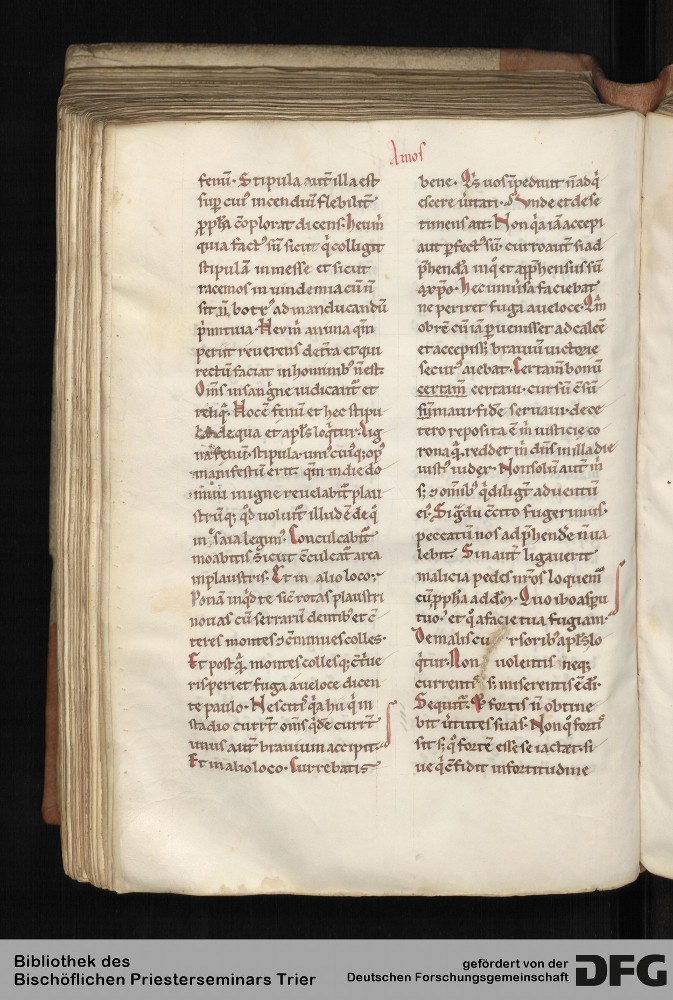 Amos
fenū. Stipula aut̄ illa est
sup cui' incendiū flebilit̄
ꝓpħa cōplorat dicens. heu m̄
quia fact' sū sicut q̇ colligit
stipulā in messe et sicut
racemos in uindemia cū n̄
sit botr' ad manducandū
p̄mitiua. Heu m̄ anima qm̄
periit reuerens de t̄ra et qui
rectū faciat in hominib' n̄ est.
Om̄s in sanguīne iudicant̄ et
reliq̇. Hoc ē fenū et hec stipu
la de qua et apl's loq̇tur. Lig
na fenū. stipula. uni' cui'q; op'
manifestū erit. qm̄ in die do
mini in igne reuelabit̄ plau
strūq; qd uoluit̄ illud ē de q̇
in ysaia legim'. Conculcabit̄
moabitis sicut c̄culcat̄ area
in plaustris. Et in alio loco.
Ponā inq̇d te sic̄ rotas plaustri
nouas cū serrarū dentib' et c̄
teres montes ⁊ c̄minues colles.
Et postq̄ montes collesq; c̄t̄ue
ris periet fuga a ueloce dicen
te paulo. Nescitis q̇a hii q̇ in
stadio curr̄t om̄s q̇de curr̄t
unus aut̄ brauium accipit.
Et in alio loco. Currebatis
bene. Q's uos īpediuit n̄ adq̇
escere ūitati. Unde et de se
timens ait. Non q̇a iā accepi
aut perfect' sū. curro aut̄ si ad
p̄hendā in q̇ et app̄hensus sū
a xp̄o. Hec in uisa faciebat
ne periret fuga a ueloce. Qm̄
obrē cū iā puenisset ad calcē
et accepiss; brauiū uictorie
secur' aiebat. Certam̄ bonū
certam̄ certaui. cursū c̄sū
maui. fidē seruaui. de ce
tero reposita ē m̄ iusticie co
rona q̄ reddet m̄ dn̄s in illa die
iust' iudex. Non solū aut̄ m̄
s; ⁊ om̄ib' q̇ diligt̄ aduentū
ei'. Si g̊du c̄cito fugerimus.
peccatū nos adp̄hendē n̄ ua
lebit. Sin aut̄ ligauerit
malicia pedes nr̄os loquem̄
cū ꝓpħa ad dōm. Quo ibo a sp̄u
tuo. et q̊ a facie tua fugiam.
De malis cursorib' apl's lo
q̇tur. Non uolentis neq;
currentis s; miserentis ē dī.
Sequit̄. Et fortis n̄ obtine
bit ūtutes suas. Non q̊ fortis
sit s; q̊ fortē esse se iactet. si
ue q̇ c̄fidit in fortitudine
Bibliothek des
Bischöflichen Priesterseminars Trier
gefördert von der
Deutschen Forschungsgemeinschaft
DFG